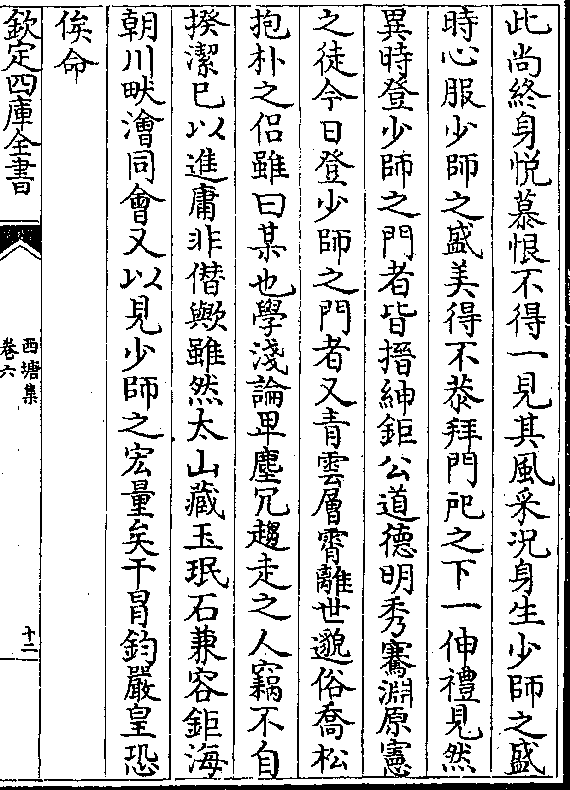 此尚終身悅慕恨不得一見其風采況身生少師之盛
時心服少師之盛美得不恭拜門戺之下一伸禮見然
異時登少師之門者皆搢紳鉅公道德明秀騫淵原憲
之徒今日登少師之門者又青雲層霄離世邈俗喬松
抱朴之侣雖曰某也學淺論卑塵冗趨走之人竊不自
揆潔已以進庸非僭歟雖然太山藏玉珉石兼容鉅海
朝川畎澮同會又以見少師之宏量矣干冒鈞嚴皇恐
俟命
欽定四庫全書
西塘集
卷六
十二